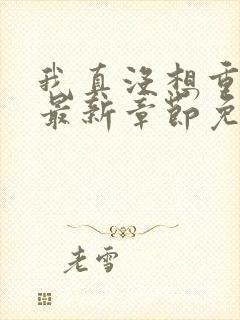 我真没想重
最新章节免
老雪